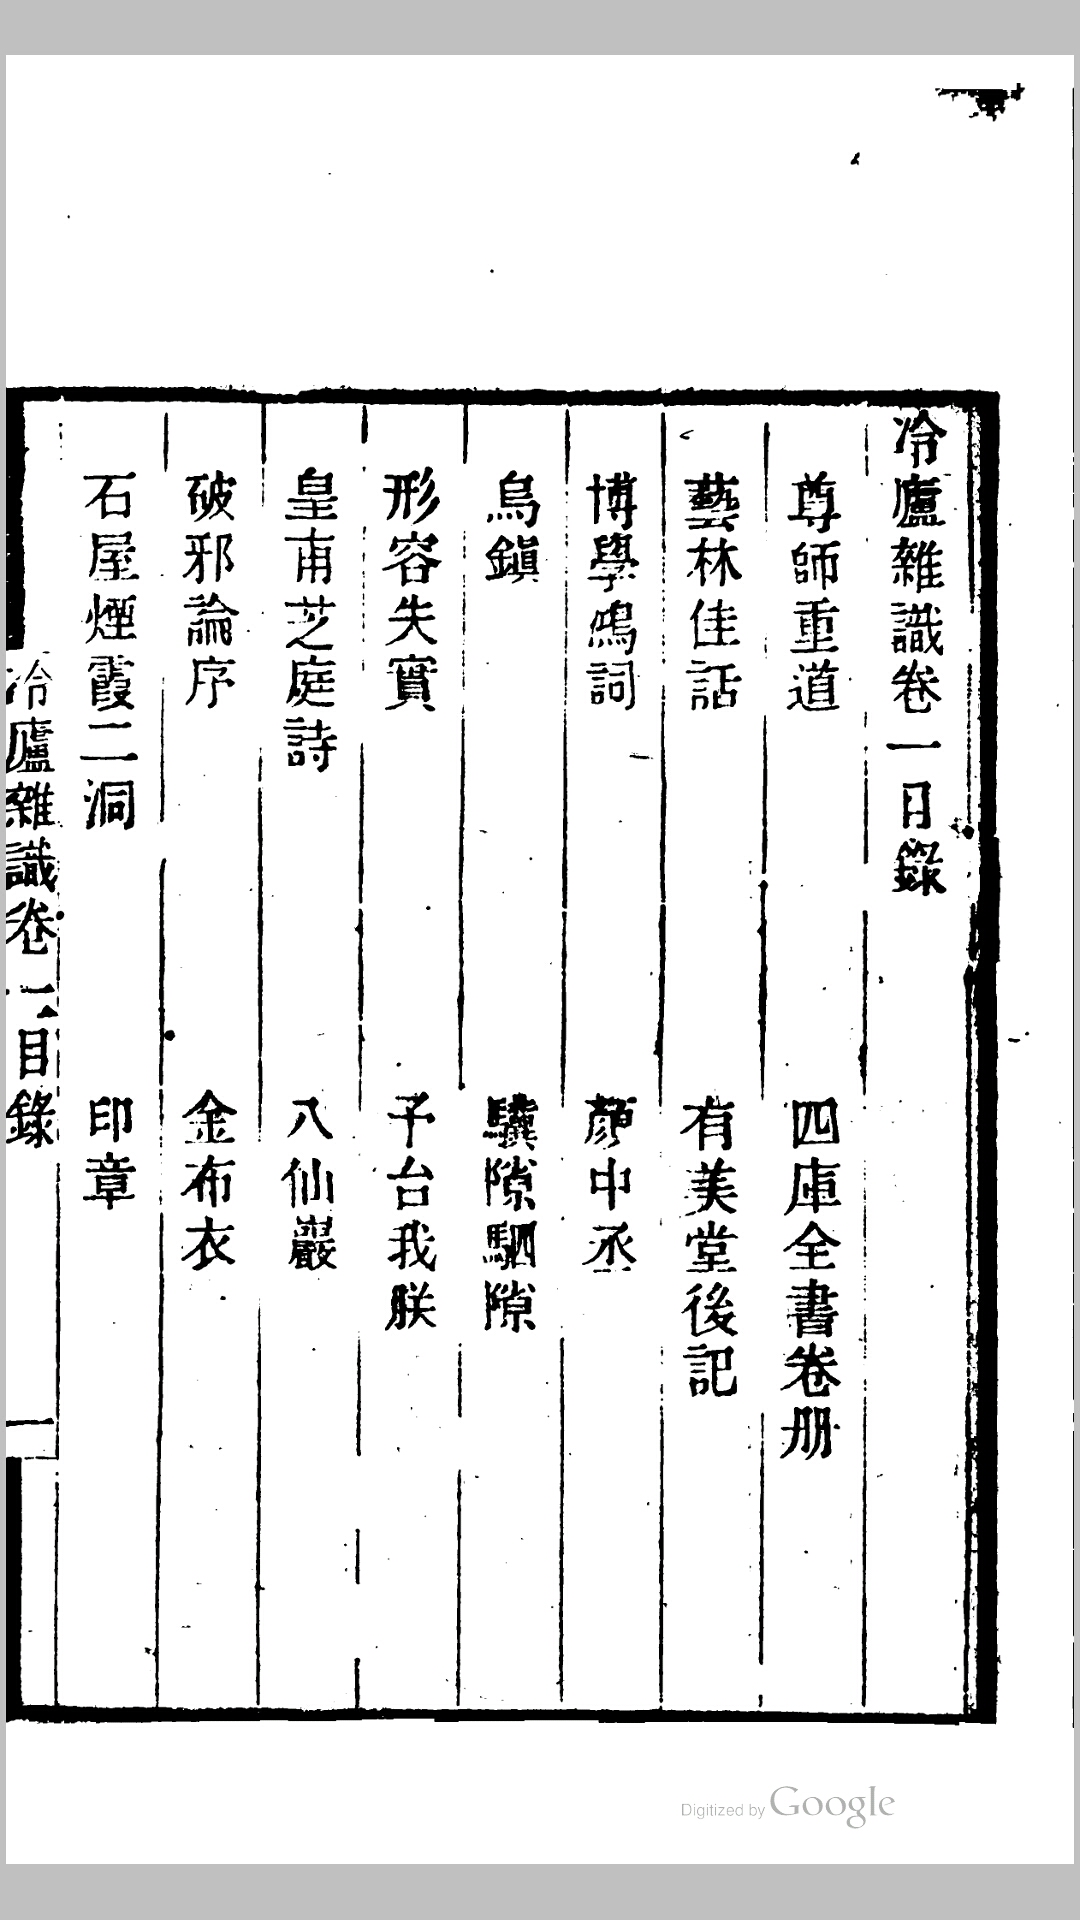 冷廬雜識卷一目錄
尊師重道　四庫全書卷册
藝林佳話　有美堂後記
博學鴻詞　顏中丞
烏鎭　驥隙駟隙
形容失實　予台我朕
皇甫芝庭詩　八仙巖
破邪論序　金布衣
石屋煙霞二洞　印章
冷廬雜識卷一目錄　一
Digitized by Google